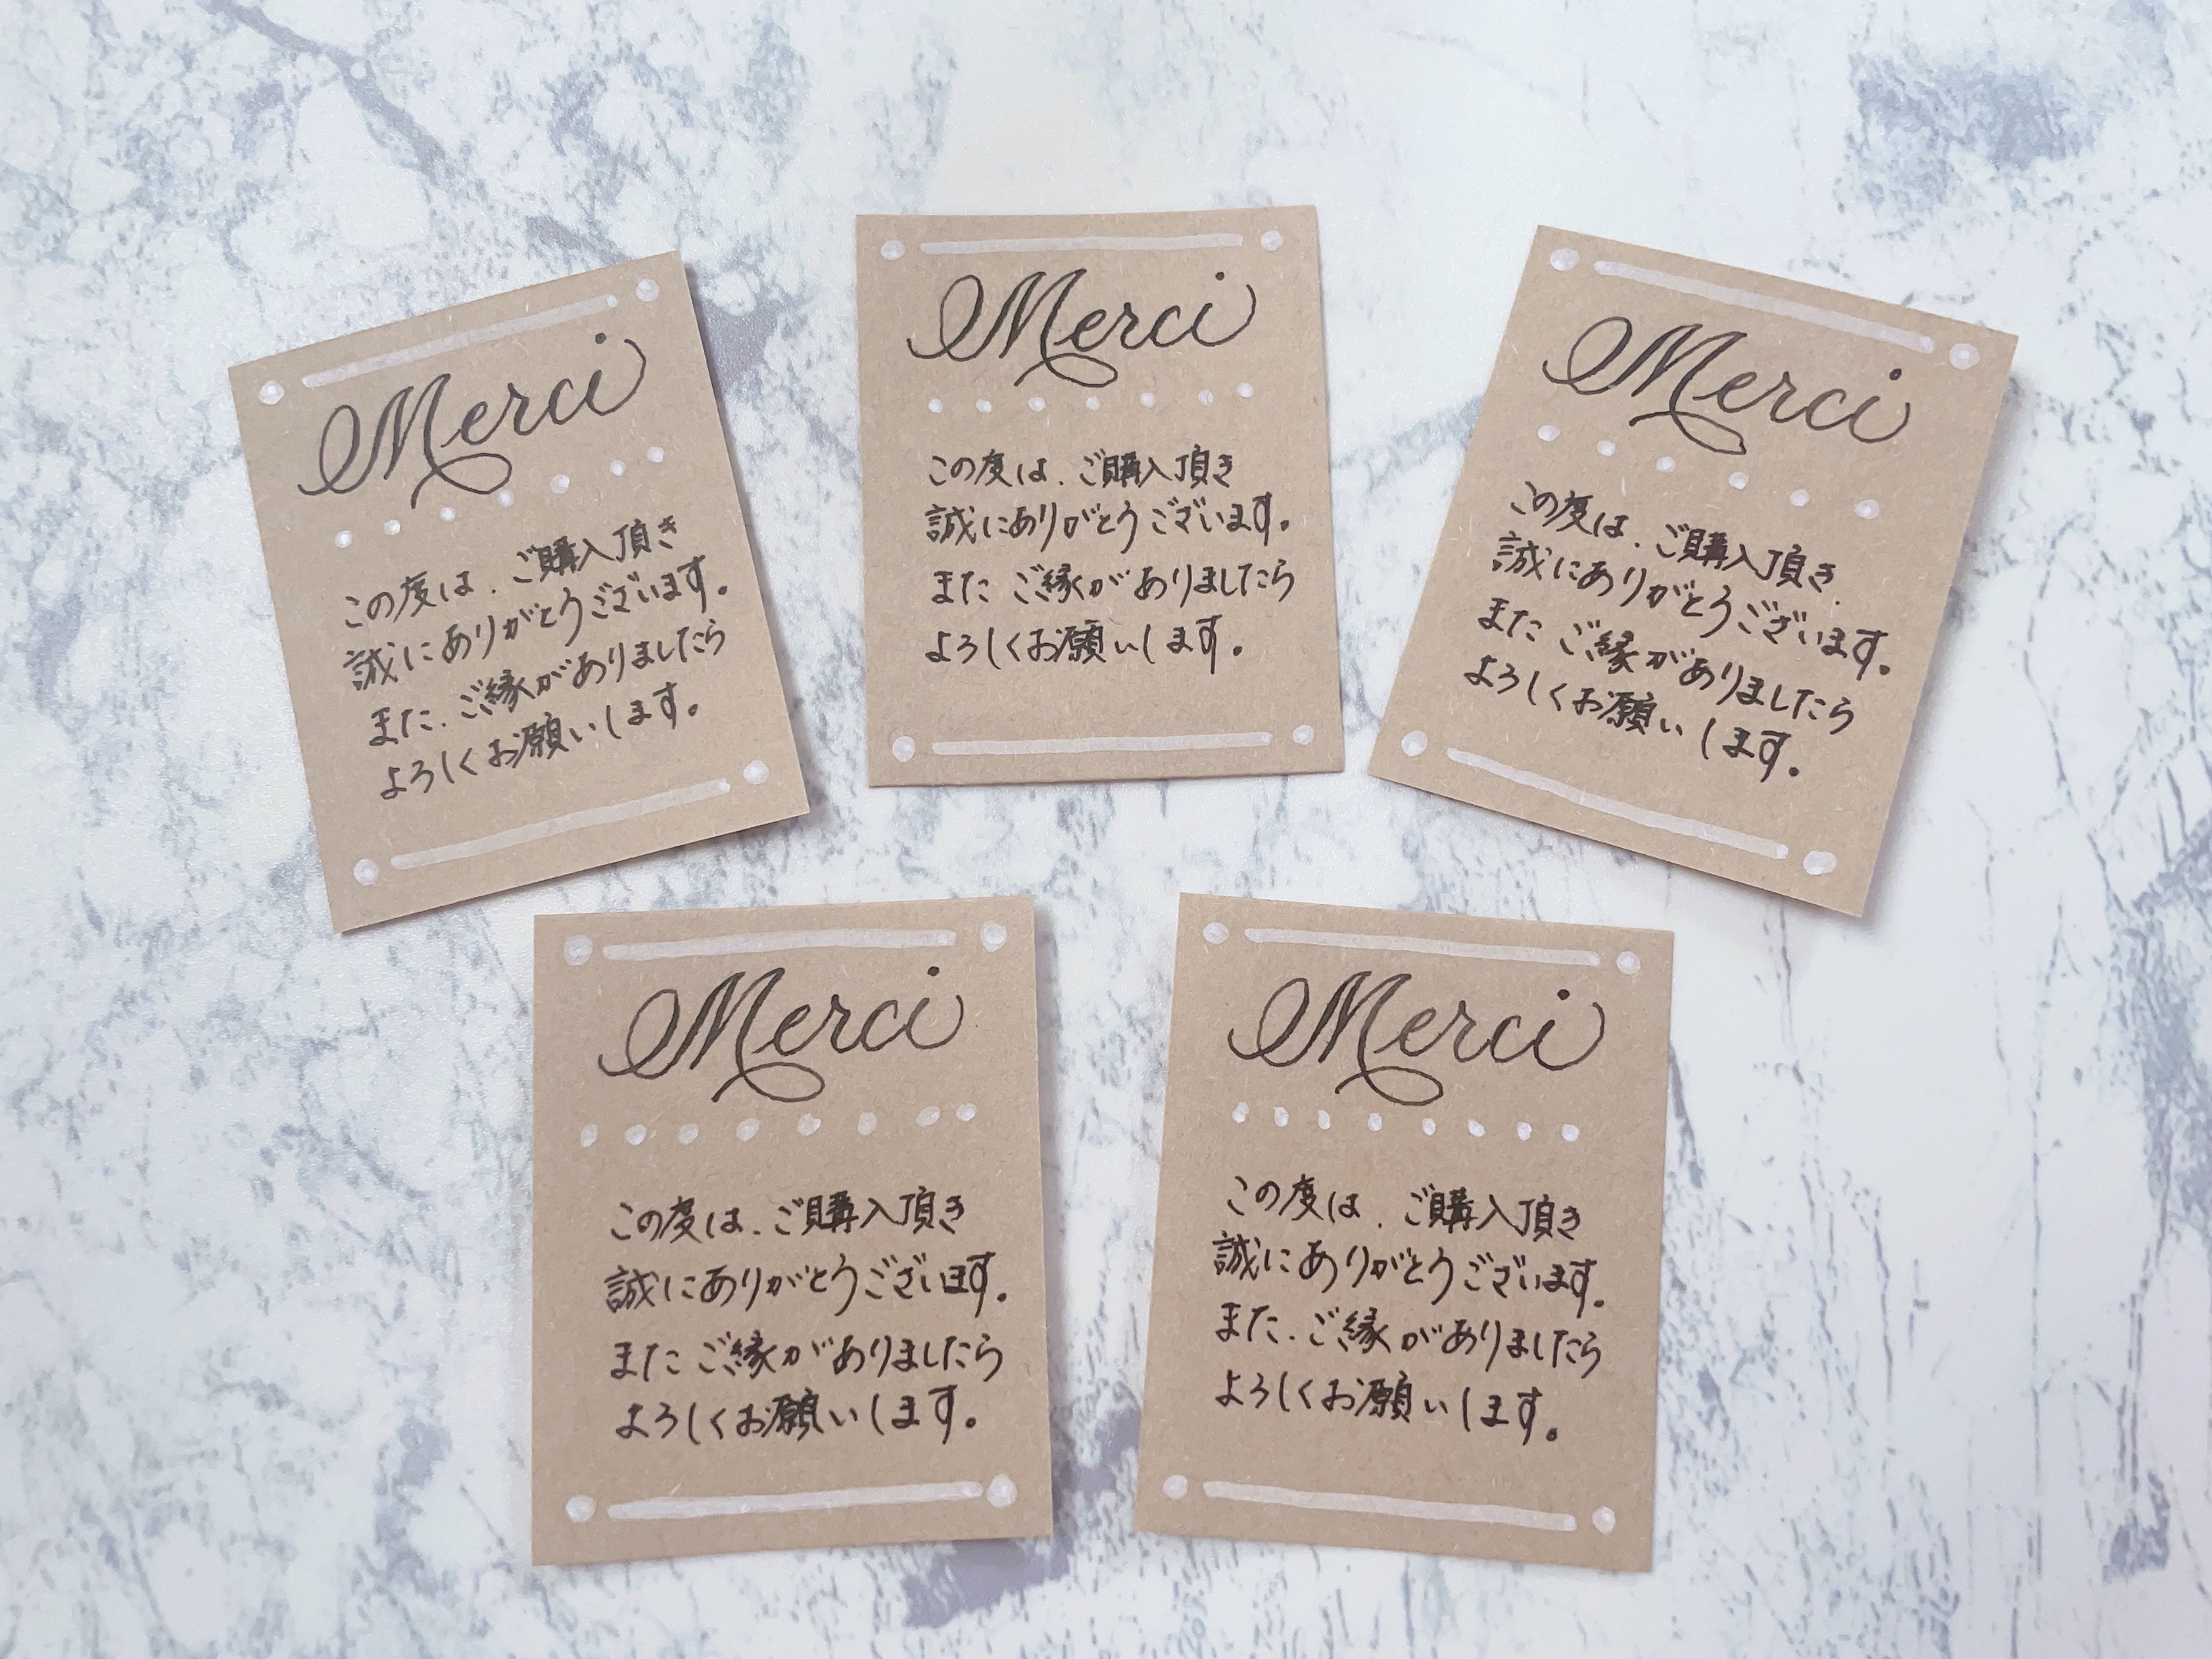 Merci
この度は、ご購入頂き
誠にありがとうございます。
また、ご縁がありましたら
よろしくお願いします。
Merci
この度は、ご購入頂き
誠にありがとうございます。
また ご縁がありましたら
よろしくお願いします。
Merci
この度は、ご購入頂き
誠にありがとうございます。
また ご縁がありましたら
よろしくお願いします。
Merci
この度は、ご購入頂き
誠にありがとうございます。
また ご縁がありましたら
よろしくお願いします。
Merci
この度は、ご購入頂き
誠にありがとうございます。
また、ご縁がありましたら
よろしくお願いします。